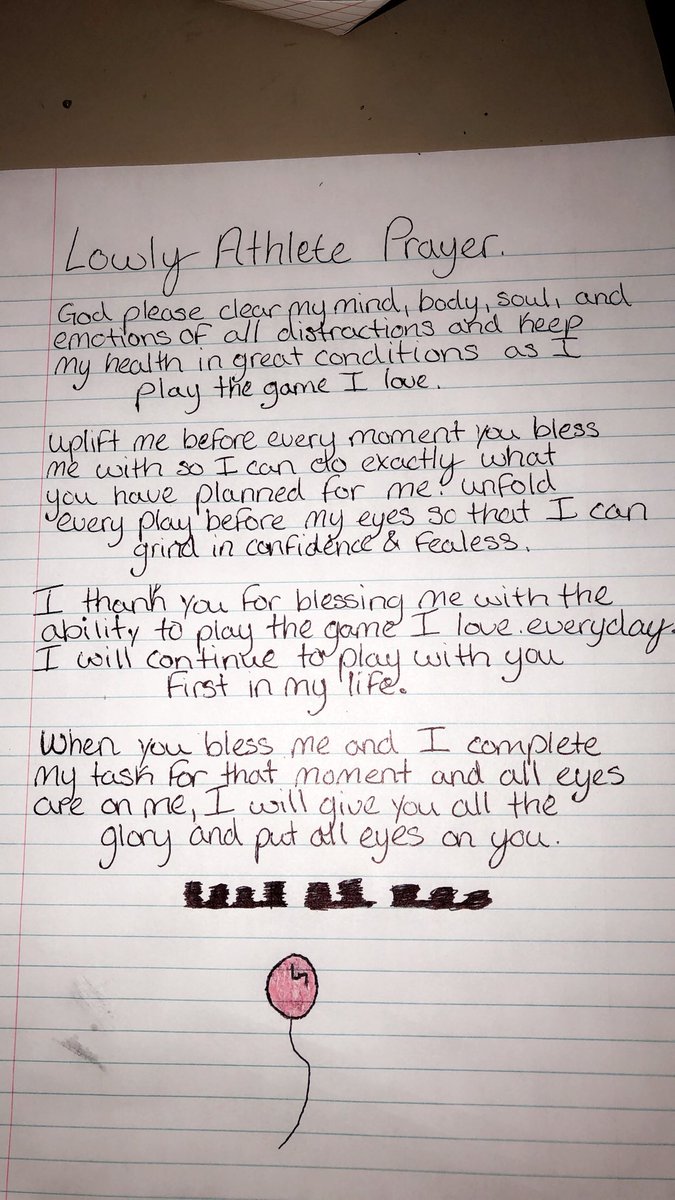 Lowly Athlete Prayer.
God please clear my mind, body, soul, and
emotions of all distractions and keep
my health in great conditions as I
play the game I love.
uplift me before every moment you bless
me with so I can do exactly what
you have planned for me. unfold
every play before my eyes so that I can
grind in confidence & fealess.
I thank you for blessing me with the
ability to play the game I love. everyday.
I will continue to play with you
first in my life.
When you bless me and I complete
my task for that moment and all eyes
are on me, I will give you all the
glory and put all eyes on you.